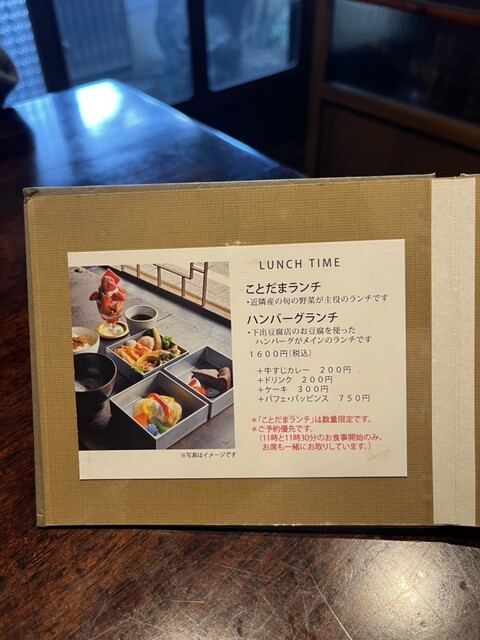 LUNCH TIME
ことだまランチ
・近隣産の旬の野菜が主役のランチです
ハンバーグランチ
・下出豆腐店のお豆腐を使った
ハンバーグがメインのランチです
1600円(税込)
+牛すじカレー 200円
+ドリンク 200円
+ケーキ 300円
+パフェ・パッピンス 750円
*「ことだまランチ」は数量限定です。
*ご予約優先です。
(11時と11時30分のお食事開始のみ、
お席も一緒にお取りしています。)
※写真はイメージです